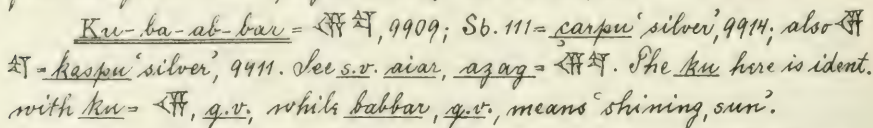 Ku-ba-ab-bar = 𒆬𒌓, 9909; Sb. 111 = çarpu 'silver', 9914; also 𒆬
𒌓 = kaspu 'silver', 9911. See s.v. aiar, azag = 𒆬𒌓. The ku here is ident.
with ku = 𒆬, q.v., while babbar, q.v., means 'shining, sun'.